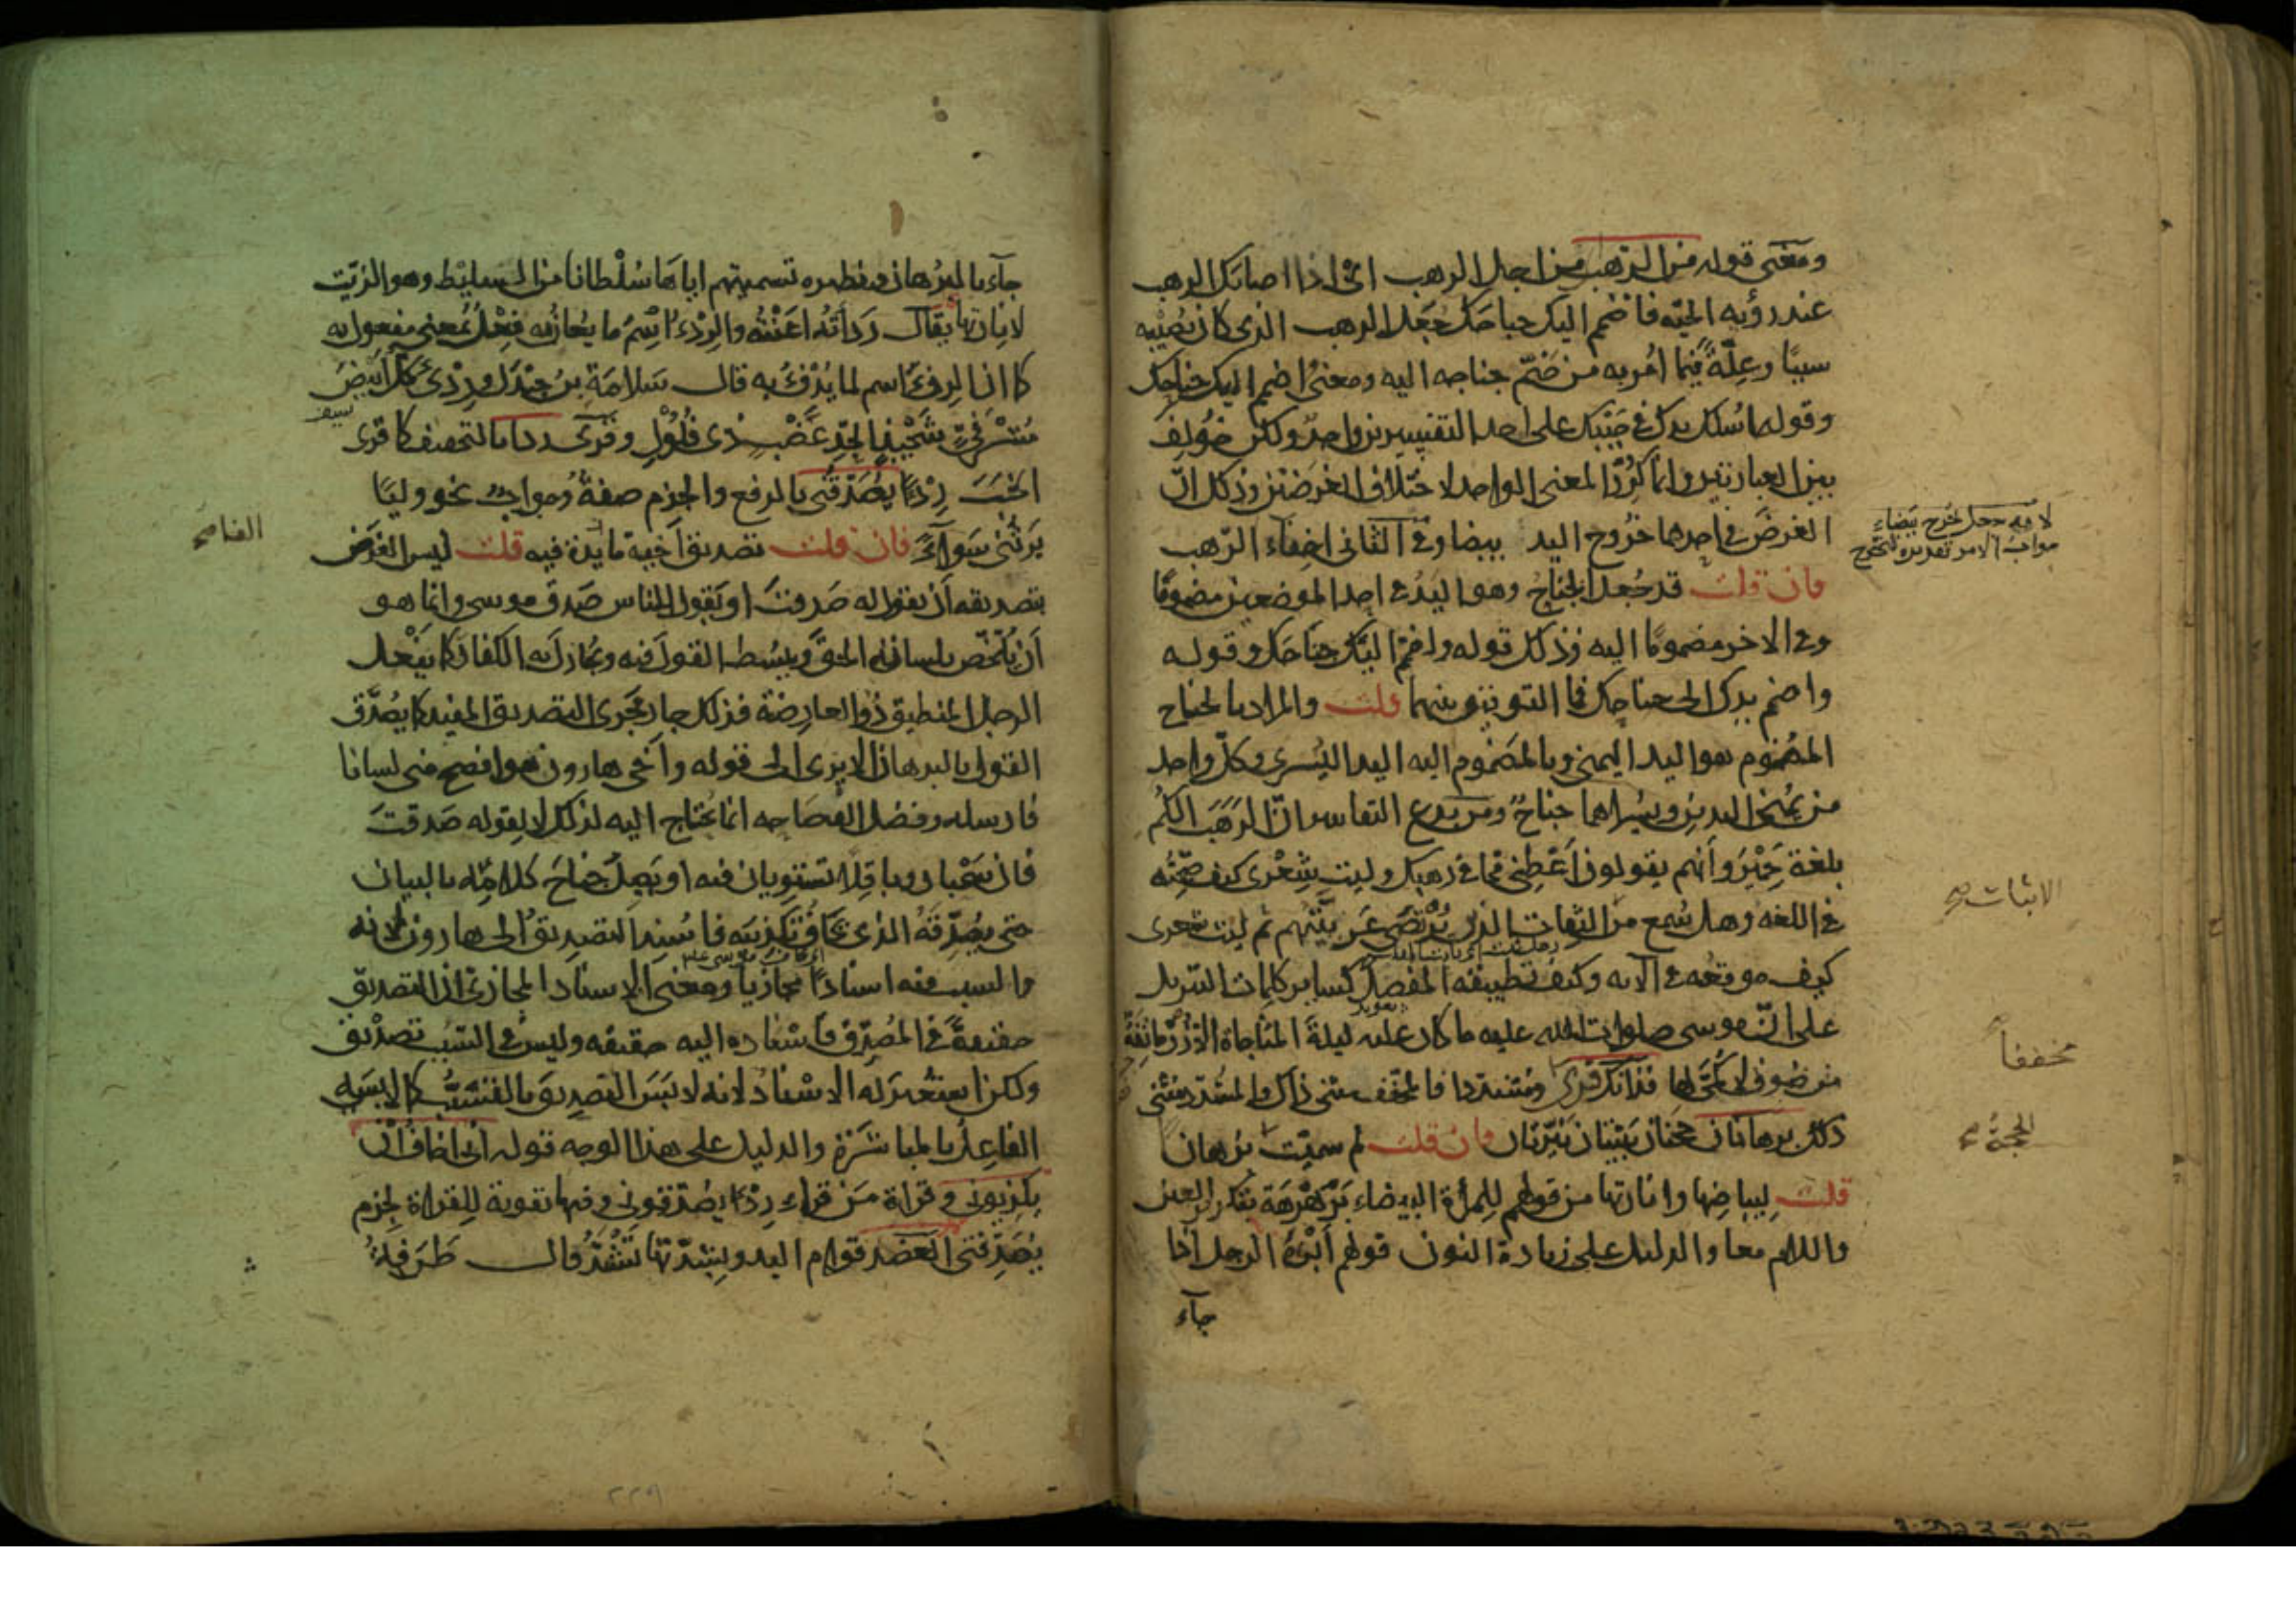 ومعنى قوله من الرهب من اجل الرهب اى اذا اصابك الرهب
عند رؤيه الحيّه فاضمم اليك جناحك جَعَل الرهب الذى كان يُصيبه
سببًا وعِلّةً فيما اُمر به من ضَمّ جناحه اليه ومعنى اضمم اليك جناحك
وقوله اسلك يدك فى جَيْبك على احد التفسيرين واحدٌ ولكن خُولِفَ
بين العبارتين وانما كُرّر المعنى الواحد لاختلاف الغرضَيْن وذلك انّ
الغرضَ فى احدهما خُروج اليد بيضا وفى الثانى اخفاء الرّهب
لانه جعل تخرج بيضاء
جوابَ الامر تقديره لتخرج
فان قلت قد جُعل الجناحُ وهو اليَدُ فى احد الموضعين مضمومًا
وفى الاخر مضمومًا اليه وذلك قوله واضمم اليك جناحَك وقوله
واضمم يدك الى جناحك فما التوفيق بينهما قلت والمراد بالجناح
المضموم هو اليد اليمنى وبالمضموم اليه اليد اليُسرى وكلّ واحد
من يُمْنى اليدين ويُسراهما جناحٌ ومن بدع التفاسير انّ الرَهَبَ الكُمّ
بلغة حِمْيَر وأنهم يقولون أَعْطِنى مما فى رَهبك وليت شِعْرى كيف صِحّتُه
فى اللغه وهل سُمع من الثقات الذين يُرْتَضى عَربيّتهم ثم ليت شعرى
الاثبات صح
كيف موقعُه فى الآيه وكيف تطبيقه المفصل كساير كلمات التنزيل
على انّ موسى صلوات الله عليه ما كان عليه ليلةَ المناجاة الا زُرْمانِقَةٌ
من صُوفٍ لا كُمَّى لها فذانك قرى ومشددا فالمخفف مثنى ذاك والمشدد مثنى
مخففاً
ذلك برهانان حجتان بَيّنتان نَيّرتان فان قلت لم سميّت برهان
الحجّة صح
قلت لبياضها وانارتها من قولهم للمرأة البيضاء بَرَهْرَهَة بتكرير العين
واللام معا والدليل على زيادة النون قولهم أَبْرَهَ الرجل اذا
جآء
جآء بالبُرهان ونظيره تسميتهم اياها سُلْطانا من السليط وهو الزيّت
لانارتها يقال رَدَأتُه اعَنْتُه والرِدْءُ اسْمُ ما يُعانُ به فِعْلٌ بمعنى مفعول به
كما ان الدِفءَ اسم لما يُدْفَؤُ به قال سَلامَة بنُ جَنْدَل ورِدْئى كلّ ابيضَ
مَشْرَفىٍّ شَحيْذِ الحَدِّ عَضْبٍ ذى فُلُوْلٍ وقُرى ردا بالتخفيف كما قرى
سيف
الخَبَ رِدْءًا يُصَدّقُنى بالرفع والجزم صفةٌ وجوابٌ نحو وليًا
يَرثُنى سَوآءً فان قلت تصديق أخيه ما الفايدة فيه قلت ليس الغَرَضُ
الفا صح
بتصديقه أن يقول له صَدقتَ او يَقول للناس صَدق موسى وانما هو
أن يُلَخّص بلسانه الحقّ ويبسُط القولَ فيه ويُجادلَ به الكفارَ كما يَفْعل
الرجل المنطيق ذُو العارِضة فذلك جارٍ مَجْرى التصديق المفيد كما يُصَدَّق
القول بالبرهان الا يرى الى قوله وأخى هارون هو افصح منى لسانا
فارسله وفضل الفصاحه انما يُحتاج اليه لذلك لا لقوله صَدقتَ
فان سَحْبان وباقِلا تَسْتوِيان فيه او يَصِلُ جَناحَ كلامِه بالبيان
حتى يصُدِّقَهُ الذى يخافُ تكذيبَه فاسُنِد التصديقُ الى هارون لانه
والسبب فيه اسنادًا مجازيا ومعنى الاسناد المجازىّ ان التصديق
حقيقةً فى المُصَدِّق فاسْناده اليه حقيقه وليس فى السَبَب تصديق
ولكن استعُير له الاسْنادُ لانه لابَسَ التصديقَ بالتَسَبُّب كما لابسَه
الفاعِلُ بالمباشرَة والدليل على هذا الوجه قوله انى اخاف أن
يكذبونِ وقراة مَن قراء رِدْءًا يصُدّقونى وفيها تقوية للقراة بجزم
يُصَدّقنى العَضد قوام اليد وبشِدّتها تَشْتَدُّ قال طَرَفةُ